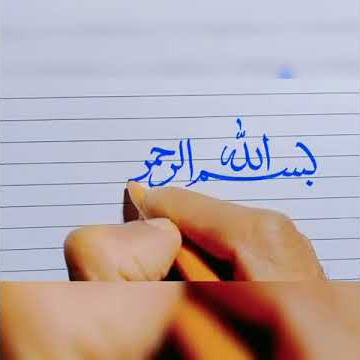 بسم الله الرحمر